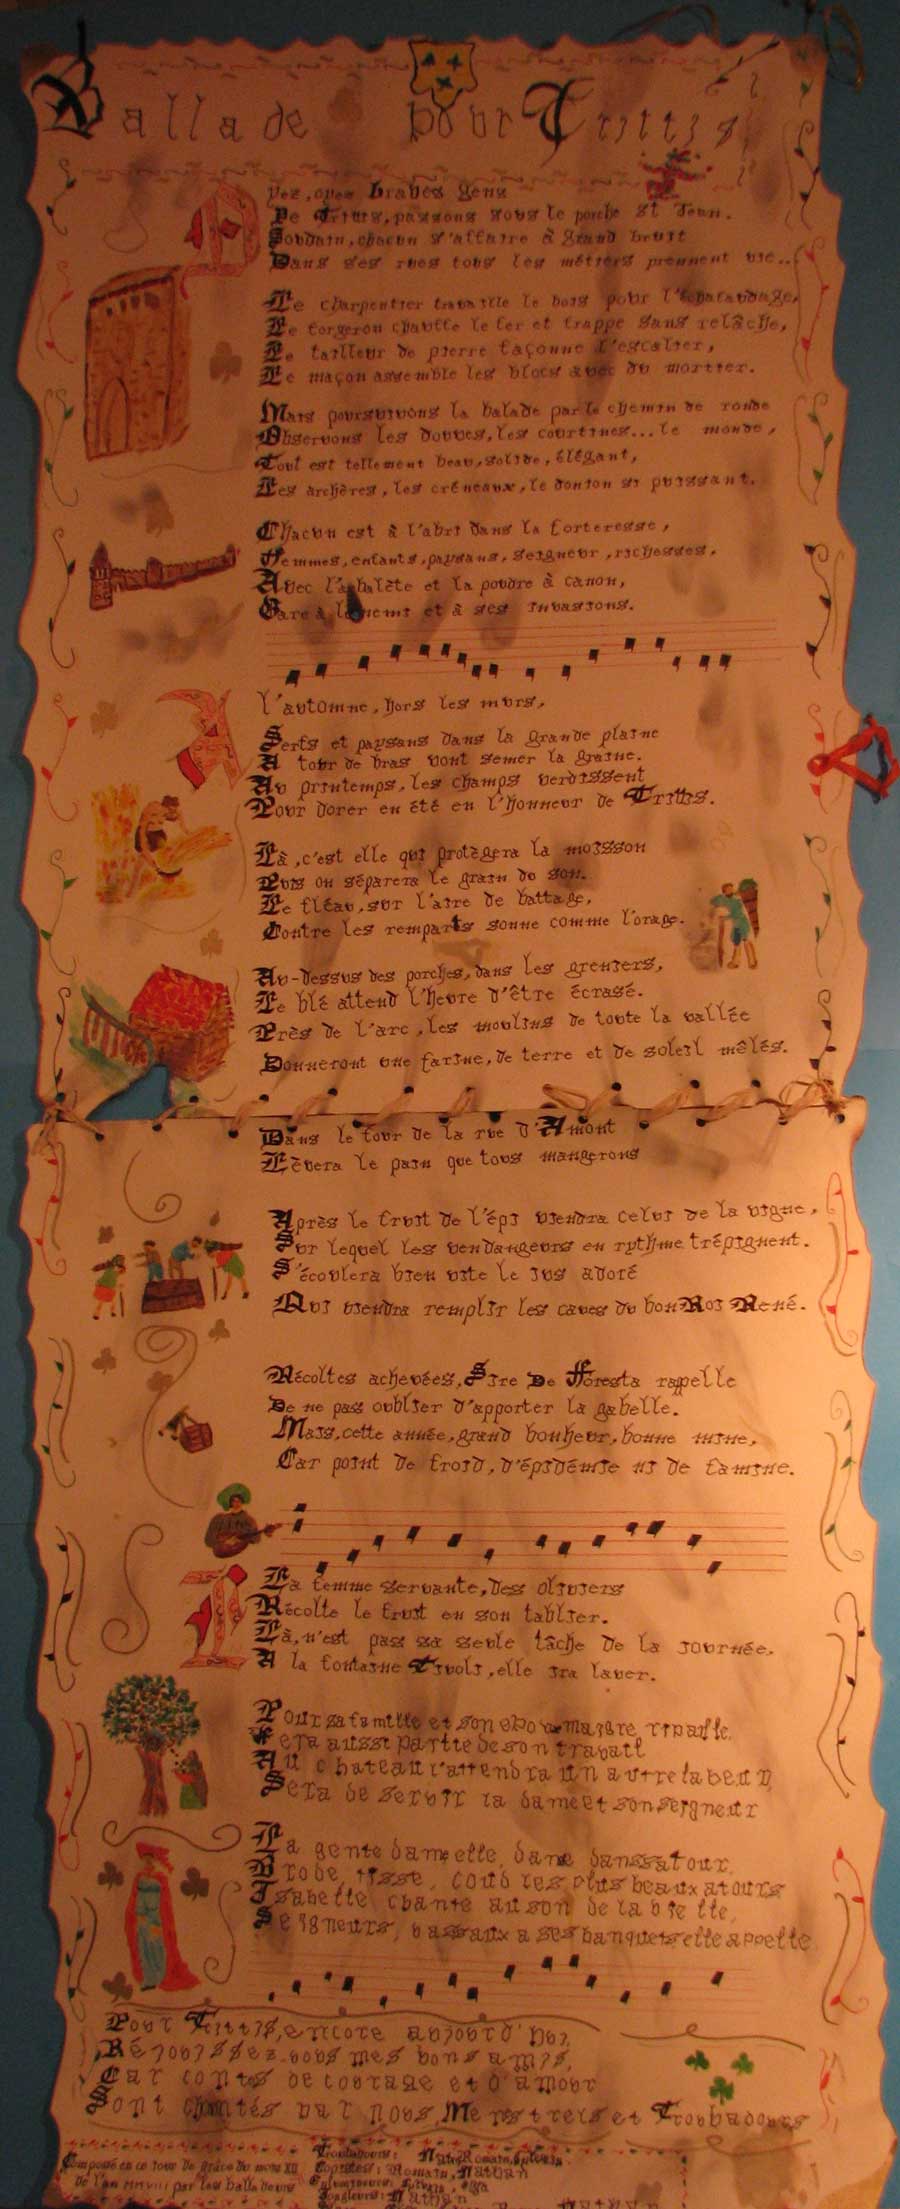 Ballade pour Trittis
Oyez, oyez braves gens
De Trittis, passons sous le porche St Jean.
Soudain, chacun s'affaire à grand bruit
Dans ses rues tous les métiers prennent vie..
Le charpentier travaille le bois pour l'échafaudage,
Le forgeron chauffe le fer et frappe sans relâche,
Le tailleur de pierre façonne l'escalier,
Le maçon assemble les blocs avec du mortier.
Mais poursuivons la balade par le chemin de ronde
Observons les douves, les courtines... le monde,
Tout est tellement beau, solide, élégant,
Les archères, les créneaux, le donjon si puissant.
Chacun est à l'abri dans la forteresse,
Femmes, enfants, paysans, seigneur, richesses,
Avec l'arbalète et la poudre à canon,
Gare à l'ennemi et à ses invasions.
l'automne, hors les murs,
Serfs et paysans dans la grande plaine
A tour de bras vont semer la graine.
Au printemps, les champs verdissent
Pour dorer en été en l'honneur de Trittis.
Là, c'est elle qui protègera la moisson
Puis on séparera le grain du son.
Le fléau, sur l'aire de battage,
Contre les remparts sonne comme l'orage.
Au-dessus des porches, dans les greniers,
Le blé attend l'heure d'être écrasé.
Près de l'arc, les moulins de toute la vallée
Donneront une farine, de terre et de soleil mêlés.
Dans le four de la rue d'Amont
Lèvera le pain que tous mangerons
Après le fruit de l'épi viendra celui de la vigne,
Sur lequel les vendangeurs en rythme trépignent.
S'écoulera bien vite le jus adoré
Qui viendra remplir les caves du bon Roi René.
Récoltes achevées, Sire De Fforesta rappelle
De ne pas oublier d'apporter la gabelle.
Mais, cette année, grand bonheur, bonne mine,
Car point de froid, d'épidémie ni de famine.
La femme servante, des oliviers
Récolte le fruit en son tablier.
Là, n'est pas sa seule tâche de la journée.
A la fontaine Tivoli, elle ira laver.
Pour sa famille et son époux maigre ripaille,
Fera aussi partie de son travail
Au chateau l'attendra un autre labeur
Sera de servir la dame et son seigneur
La gente damselle, dans sa tour,
Brode, tisse, coud les plus beaux atours
Isabelle chante au son de la vielle,
Seigneurs, vassaux a ses banquets elle appelle
Pour Trittis, encore aujourd'hui,
Réjouissez-vous mes bons amis,
Car contes de courage et d'amour
Sont chantés par nous, Menestrels et Troubadours
Composé en ce jour de grâce du mois XII
de l'an MMVIII par les balladeurs
Troubadours: Nat, Romain, Sylvain
Copistes: Romain, Nathan
Enlumineurs: Sylvain,
Jongleurs: Nathan